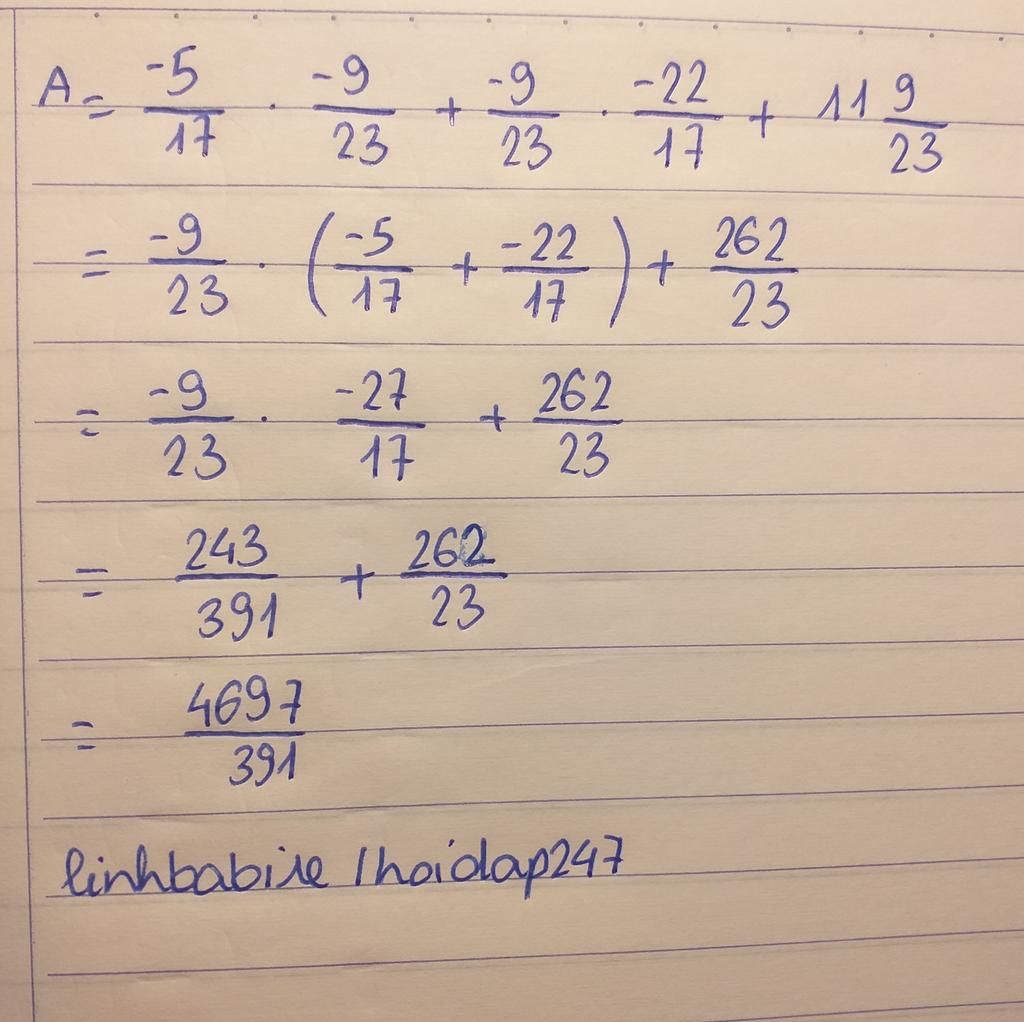 A = -5/17 . -9/23 + -9/23 . -22/17 + 11 9/23
= -9/23 . (-5/17 + -22/17) + 262/23
= -9/23 . -27/17 + 262/23
= 243/391 + 262/23
= 4697/391
linhbabie /hoidap247